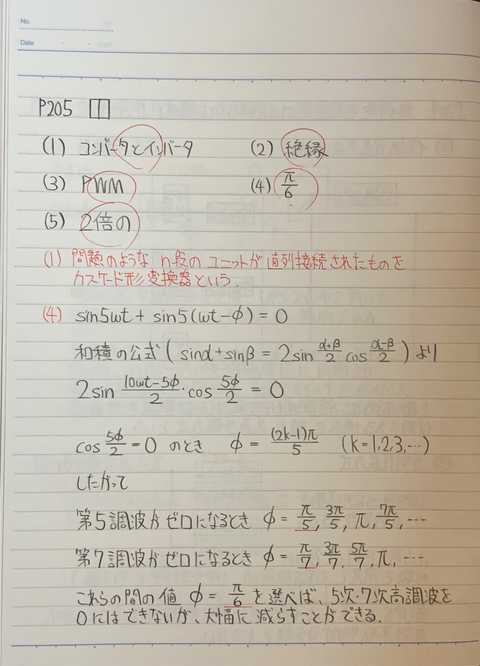 No.
Date
P205 囗
(1) コンバータとインバータ (2) 絶縁
(3) PWM (4) π/6
(5) 2倍の
(1) 問題のような n段の ユニットが 直列接続されたものを
カスケード形変換器という.
(4) sin5ωt + sin5(ωt-φ) = 0
和積の公式 ( sinα+sinβ = 2sin (α+β)/2 cos (α-β)/2 ) より
2sin (10ωt-5φ)/2 · cos 5φ/2 = 0
cos 5φ/2 = 0 のとき φ = (2k-1)π/5 (k=1,2,3,…)
したがって
第5調波がゼロになるとき φ = π/5, 3π/5, π, 7π/5, …
第7調波がゼロになるとき φ = π/7, 3π/7, 5π/7, π, …
これらの間の値 φ = π/6 を選べば、5次・7次高調波を
0にはできないが、大幅に減らすことができる.